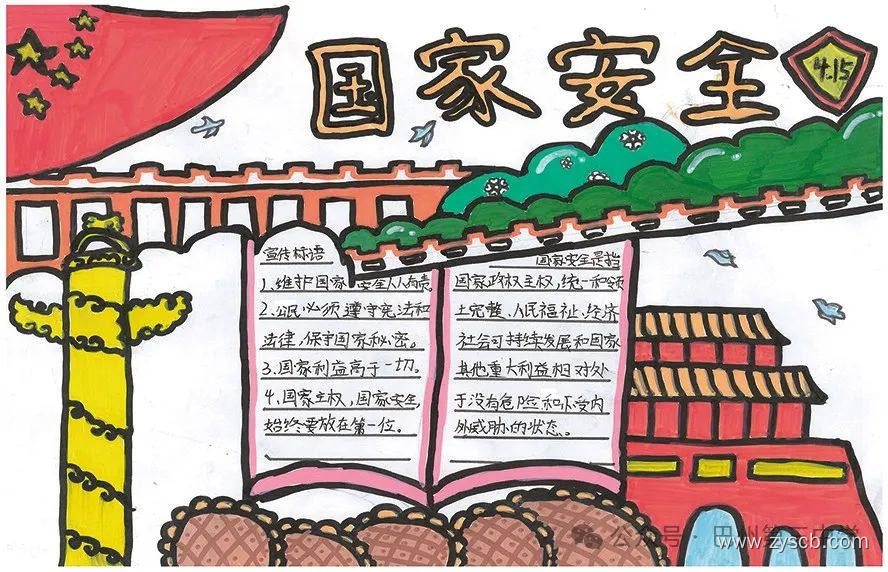 国家安全
4.15
宣传标语
1、维护国家安全人人有责。
2、公民必须遵守宪法和
法律,保守国家秘密。
3、国家利益高于一切。
4、国家主权,国家安全,
始终要放在第一位。
国家安全是指
国家政权主权,统一和领
土完整、人民福祉、经济
社会可持续发展和国家
其他重大利益相对处
于没有危险和不受内
外威胁的状态。
公众号·巴州第三中学
www.zyscb.com